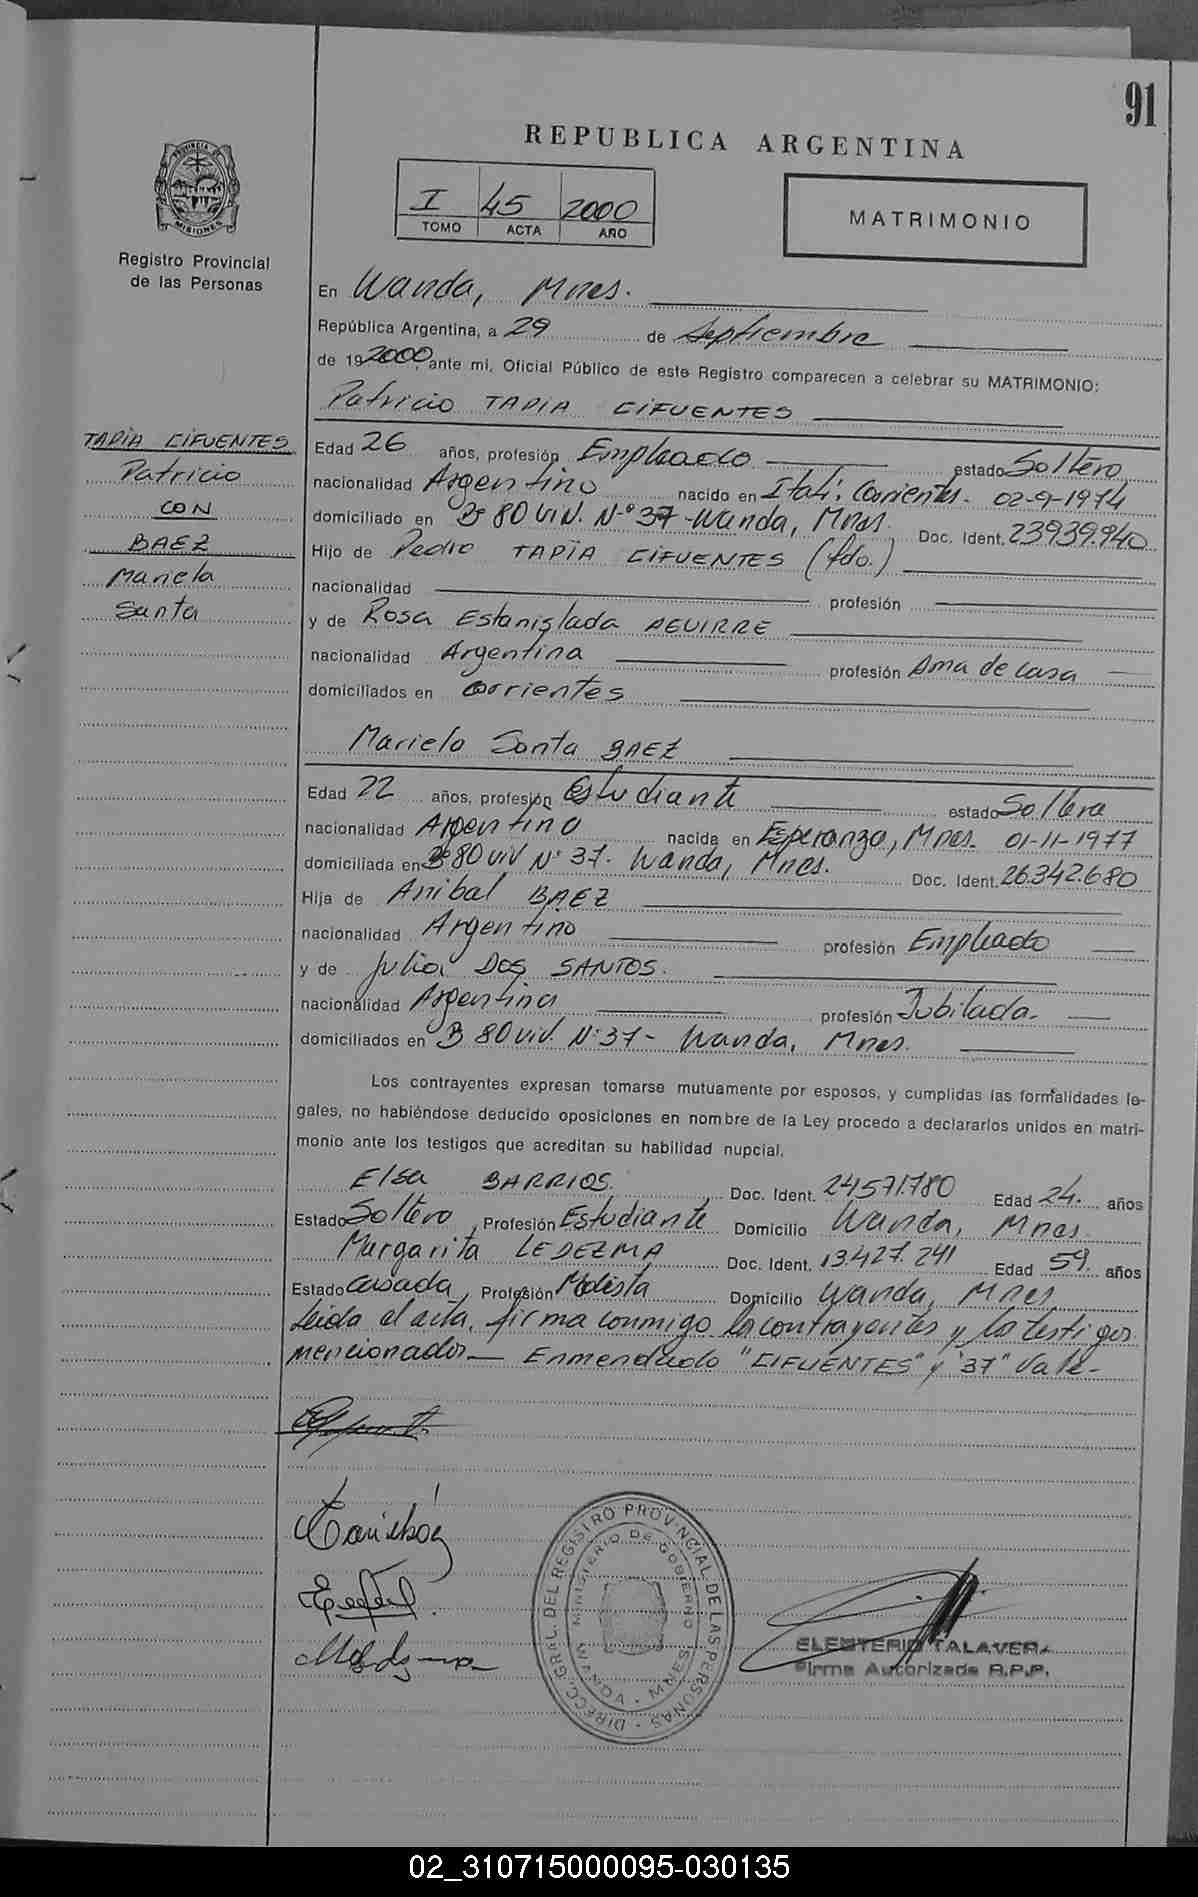 91
REPUBLICA ARGENTINA
PROVINCIA DE MISIONES
Registro Provincial
de las Personas
I 45 2000
TOMO ACTA AÑO
MATRIMONIO
En Wanda, Mnes.
República Argentina, a 29 de Septiembre
de 192000, ante mi, Oficial Público de este Registro comparecen a celebrar su MATRIMONIO:
Patricio TAPIA CIFUENTES
TAPIA CIFUENTES
Patricio
CON
BAEZ
Mariela
Santa
Edad 26 años, profesión Empleado estado Soltero
nacionalidad Argentino nacido en Itatí. Corrientes. 02-9-1974
domiciliado en Bº 80 viv. Nº 37 - Wanda, Mnes. Doc. Ident. 23939.940
Hijo de Pedro TAPIA CIFUENTES (fdo.)
nacionalidad profesión
y de Rosa Estanislada AGUIRRE
nacionalidad Argentina profesión Ama de casa
domiciliados en Corrientes
Mariela Santa BAEZ
Edad 22 años, profesión Estudiante estado Soltera
nacionalidad Argentina nacida en Esperanza, Mnes. 01-11-1977
domiciliada en Bº 80 viv Nº 37. Wanda, Mnes. Doc. Ident. 26.342.680
Hija de Anibal BAEZ
nacionalidad Argentino profesión Empleado
y de Julia DOS SANTOS.
nacionalidad Argentina profesión Jubilada.
domiciliados en B 80 viv. Nº 37 - Wanda, Mnes.
Los contrayentes expresan tomarse mutuamente por esposos, y cumplidas las formalidades le-
gales, no habiéndose deducido oposiciones en nombre de la Ley procedo a declararlos unidos en matri-
monio ante los testigos que acreditan su habilidad nupcial.
Elsa BARRIOS. Doc. Ident. 24571.780 Edad 24. años
Estado Soltero, Profesión Estudiante Domicilio Wanda, Mnes.
Margarita LEDEZMA Doc. Ident. 13.427.241 Edad 59. años
Estado Casada, Profesión Modista Domicilio Wanda, Mnes
Leida el acta, firma conmigo los contrayentes y los testigos
mencionados — Enmendado "CIFUENTES" y "37" Vale-
DIRECC. GRAL. DEL REGISTRO PROVINCIAL DE LAS PERSONAS
MINISTERIO DE GOBIERNO
WANDA - MNES
ELEUTERIO TALAVERA
Firma Autorizada R.P.P.
02_310715000095-030135